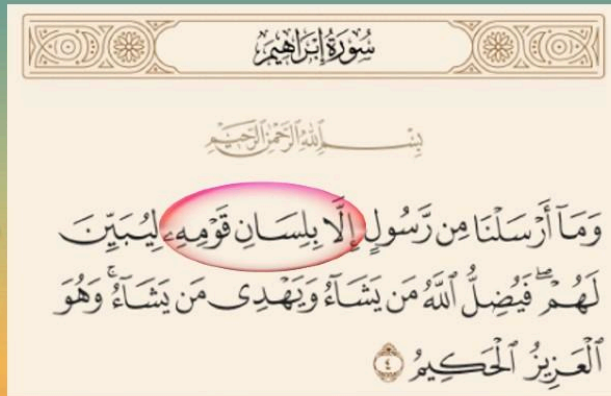 سُورَةُ إِبْرَاهِيمَ
بِسْمِ اللَّهِ الرَّحْمَٰنِ الرَّحِيمِ
وَمَآ أَرْسَلْنَا مِن رَّسُولٍ إِلَّا بِلِسَانِ قَوْمِهِۦ لِيُبَيِّنَ
لَهُمْ ۖ فَيُضِلُّ ٱللَّهُ مَن يَشَآءُ وَيَهْدِى مَن يَشَآءُ ۚ وَهُوَ
ٱلْعَزِيزُ ٱلْحَكِيمُ ٤